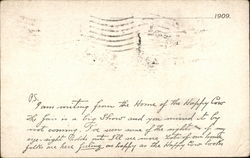 1909.
P.S.
I am writing from the Home of the Happy Cow
The Fair is a big Show and you missed it by
not coming. I've seen some of the sights of my
eye-sight I'll see more. Lots of our
folks are here feeling as happy as the Happy Cow looks